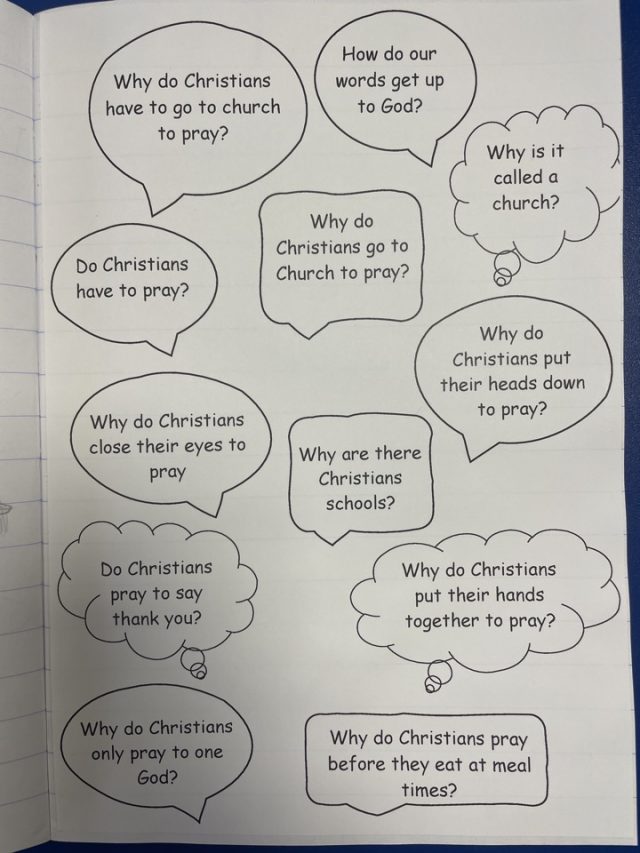 Why do Christians
have to go to church
to pray?
How do our
words get up
to God?
Why is it
called a
church?
Do Christians
have to pray?
Why do
Christians go to
Church to pray?
Why do
Christians put
their heads down
to pray?
Why do Christians
close their eyes to
pray
Why are there
Christians
schools?
Do Christians
pray to say
thank you?
Why do Christians
put their hands
together to pray?
Why do Christians
only pray to one
God?
Why do Christians pray
before they eat at meal
times?